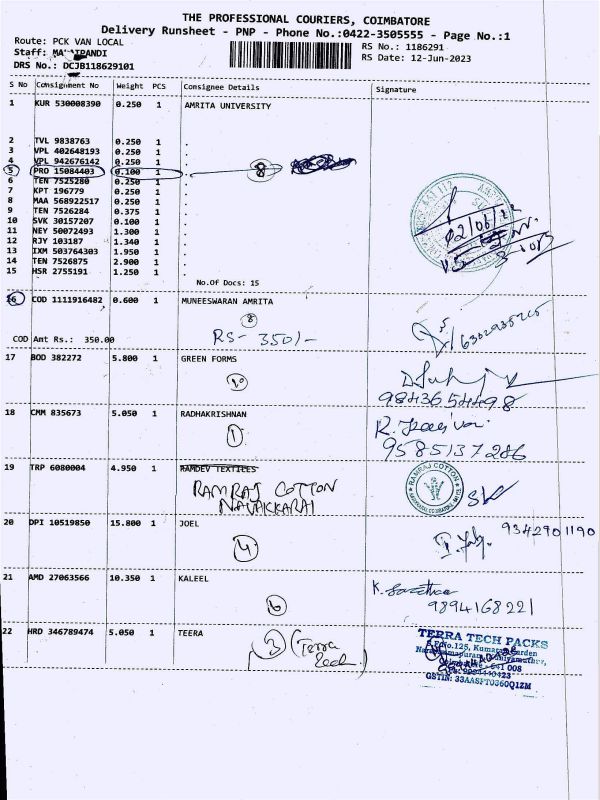 THE PROFESSIONAL COURIERS, COIMBATORE
Delivery Runsheet - PNP - Phone No.:0422-3505555 - Page No.:1
Route: PCK VAN LOCAL
RS No.: 1186291
Staff:
RS Date: 12-Jun-2023
DRS No.: DCJB118629101
S No Consignment No Weight PCS Consignee Details Signature
1 KUR 530008390 0.250 1 AMRITA UNIVERSITY
2 TVL 9838763 0.250 1 .
3 VPL 402648193 0.250 1 .
4 VPL 942676142 0.250 1 .
5 PRD 15084403 0.100 1 8
6 TEN 7525280 0.250 1 .
7 KPT 196779 0.250 1 .
8 MAA 568922517 0.250 1 .
9 TEN 7526284 0.375 1 .
10 SVK 30157207 0.100 1 .
11 NEY 50072493 1.300 1 .
12 RJY 103187 1.340 1 .
13 IXM 503764303 1.950 1 .
14 TEN 7526875 2.900 1 .
15 HSR 2755191 1.250 1 .
No.Of Docs: 15
16 COD 1111916482 0.600 1 MUNEESWARAN AMRITA
8
COD Amt Rs.: 350.00 RS- 350/-
17 BOD 382272 5.800 1 GREEN FORMS
10
9843654498
18 CMM 835673 5.050 1 RADHAKRISHNAN
1
9585137286
19 TRP 6080004 4.950 1 RAMDEV TEXTILES
RAMRAJ COTTON
NAVAKKARAI
RAMRAJ COTTON
20 DPI 10519850 15.800 1 JOEL
9342901190
4
21 AMD 27063566 10.350 1 KALEEL
6
9894168221
22 HRD 346789474 5.050 1 TEERA
3 (Terra
TERRA TECH PACKS
S.F.No.125, Kumaran Garden
641 008
GSTIN: